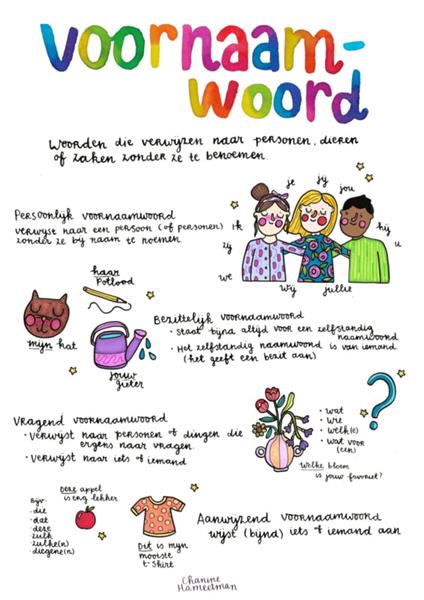 Voornaam-
woord
Woorden die verwijzen naar personen, dieren
of zaken zonder ze te benoemen.
Persoonlijk voornaamwoord
verwijst naar een persoon (of personen)
zonder ze bij naam te noemen.
je
jij
jou
ik
hij
zij
u
we
wij
jullie
haar
potlood
mijn kat
jouw
gieter
Bezittelijk voornaamwoord
• Staat bijna altijd voor een zelfstandig
naamwoord
• Het zelfstandig naamwoord is van iemand
(het geeft een bezit aan)
Vragend voornaamwoord
• verwijst naar personen of dingen die
ergens naar vragen.
• Verwijst naar iets of iemand
• wat
• wie
• welk(e)
• wat voor
(een)
Welke bloem
is jouw favoriet?
Deze appel
is erg lekker
Bijv.
• die
• dat
• deze
• zulk
• zulke(n)
• diegene(n)
Dit is mijn
mooiste
t-shirt
Aanwijzend voornaamwoord
wijst (bijna) iets of iemand aan
Chanine
Hameetman